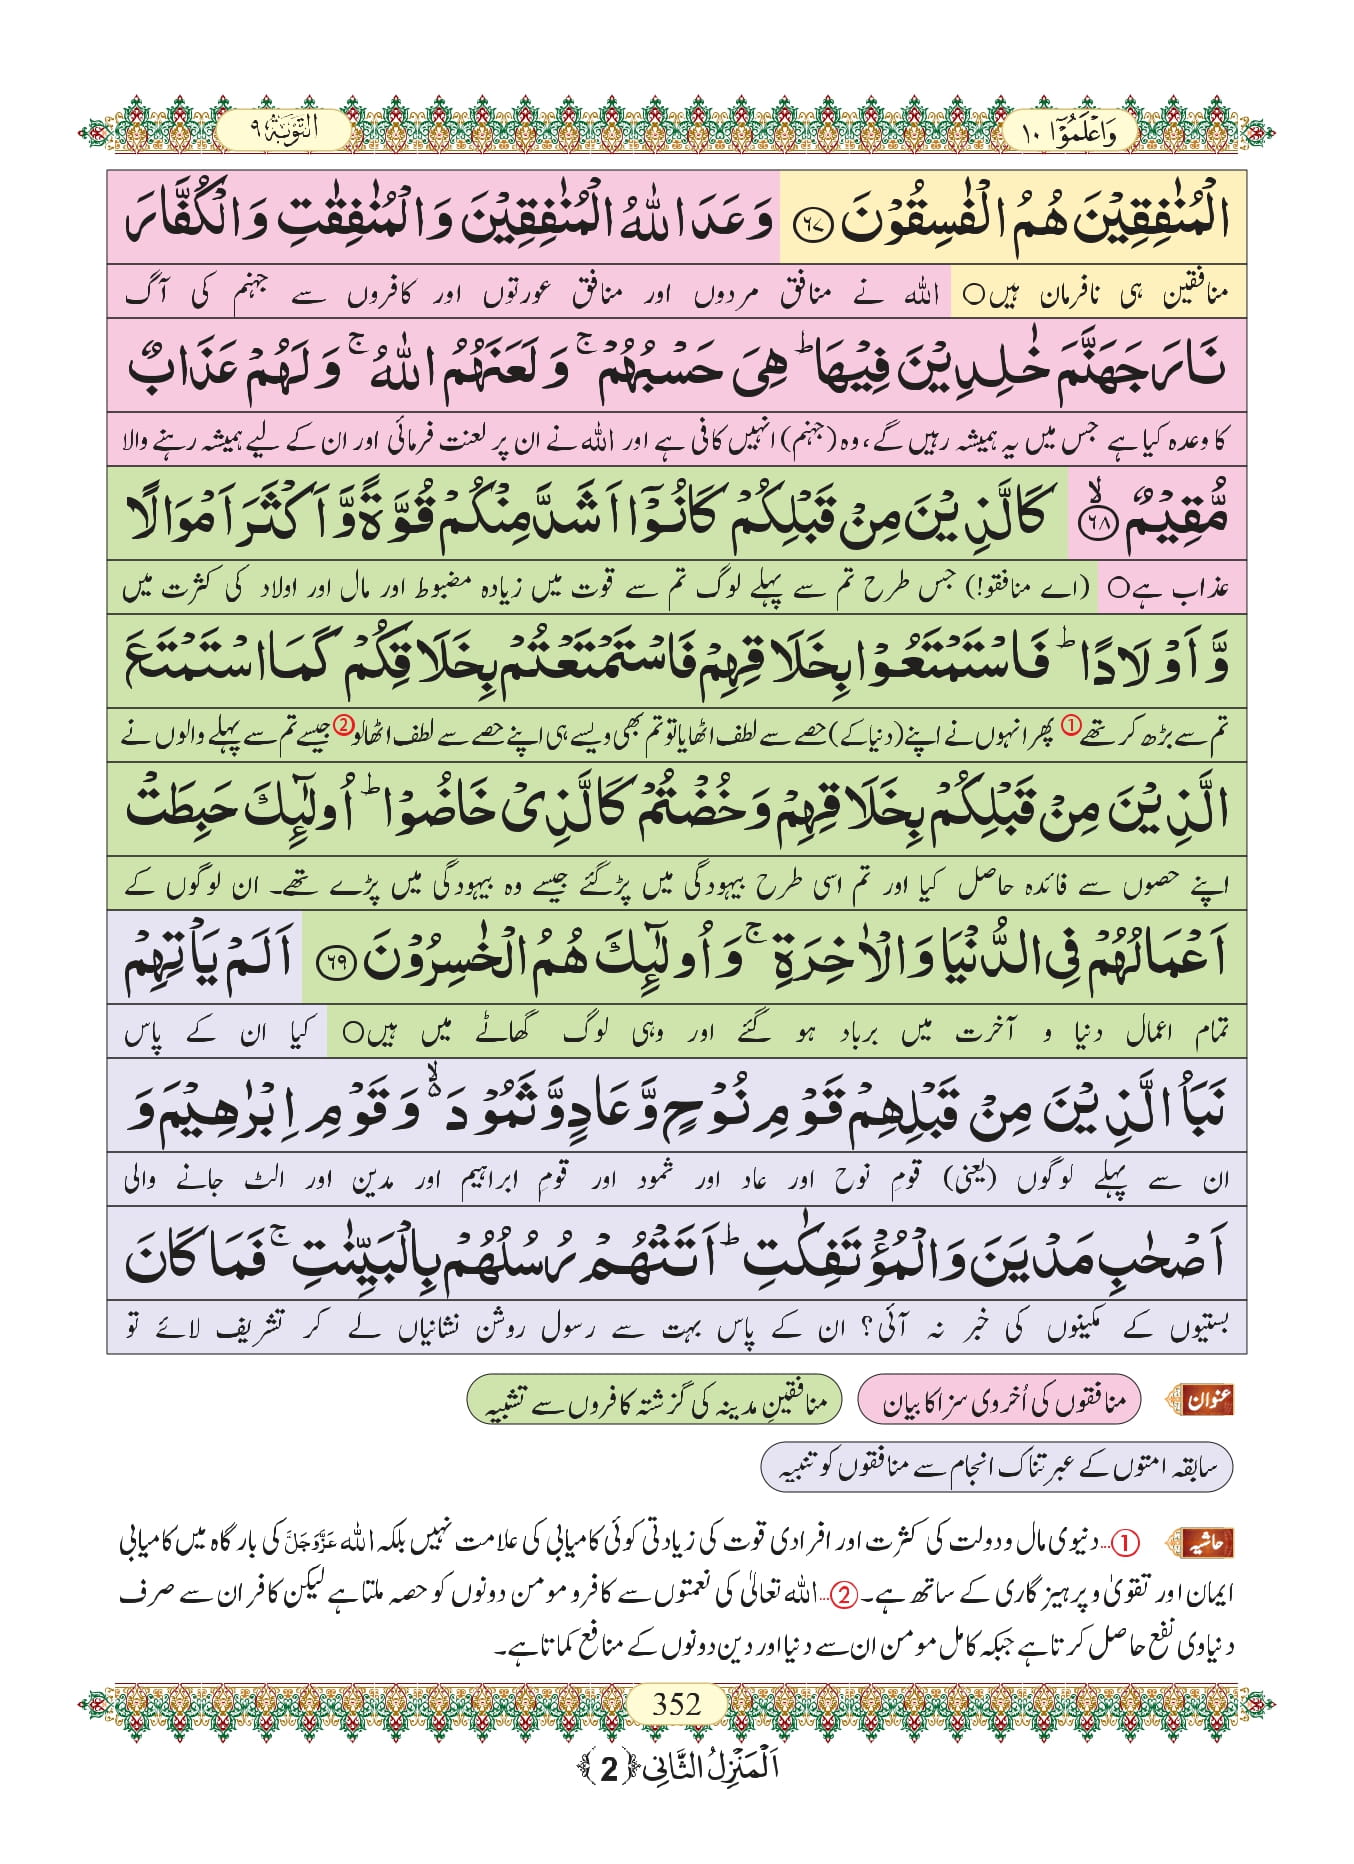 وَاعْلَمُوْۤا ١٠
التَّوْبَة ٩
الْمُنٰفِقِیْنَ هُمُ الْفٰسِقُوْنَ ﴿٦٧﴾ وَعَدَ اللّٰهُ الْمُنٰفِقِیْنَ وَالْمُنٰفِقٰتِ وَالْكُفَّارَ
منافقین ہی نافرمان ہیں○ اللہ نے منافق مردوں اور منافق عورتوں اور کافروں سے جہنم کی آگ
نَارَ جَهَنَّمَ خٰلِدِیْنَ فِیْهَا ؕ هِیَ حَسْبُهُمْ ۚ وَلَعَنَهُمُ اللّٰهُ ۚ وَلَهُمْ عَذَابٌ
کا وعدہ کیا ہے جس میں یہ ہمیشہ رہیں گے، وہ (جہنم) انہیں کافی ہے اور اللہ نے ان پر لعنت فرمائی اور ان کے لیے ہمیشہ رہنے والا
مُّقِیْمٌ ﴿٦٨﴾ۙ كَالَّذِیْنَ مِنْ قَبْلِكُمْ كَانُوْۤا اَشَدَّ مِنْكُمْ قُوَّةً وَّاَكْثَرَ اَمْوَالًا
عذاب ہے○ (اے منافقو!) جس طرح تم سے پہلے لوگ تم سے قوت میں زیادہ مضبوط اور مال اور اولاد کی کثرت میں
وَّاَوْلَادًا ؕ فَاسْتَمْتَعُوْا بِخَلَاقِهِمْ فَاسْتَمْتَعْتُمْ بِخَلَاقِكُمْ كَمَا اسْتَمْتَعَ
تم سے بڑھ کر تھے① پھر انہوں نے اپنے (دنیا کے) حصے سے لطف اٹھایا تو تم بھی ویسے ہی اپنے حصے سے لطف اٹھالو② جیسے تم سے پہلے والوں نے
الَّذِیْنَ مِنْ قَبْلِكُمْ بِخَلَاقِهِمْ وَخُضْتُمْ كَالَّذِیْ خَاضُوْا ؕ اُولٰٓىِٕكَ حَبِطَتْ
اپنے حصوں سے فائدہ حاصل کیا اور تم اسی طرح بیہودگی میں پڑگئے جیسے وہ بیہودگی میں پڑے تھے۔ ان لوگوں کے
اَعْمَالُهُمْ فِی الدُّنْیَا وَالْاٰخِرَةِ ۚ وَاُولٰٓىِٕكَ هُمُ الْخٰسِرُوْنَ ﴿٦٩﴾ اَلَمْ یَاْتِهِمْ
تمام اعمال دنیا و آخرت میں برباد ہو گئے اور وہی لوگ گھاٹے میں ہیں○ کیا ان کے پاس
نَبَاُ الَّذِیْنَ مِنْ قَبْلِهِمْ قَوْمِ نُوْحٍ وَّعَادٍ وَّثَمُوْدَ ۙ۬ وَقَوْمِ اِبْرٰهِیْمَ وَ
ان سے پہلے لوگوں (یعنی) قومِ نوح اور عاد اور ثمود اور قومِ ابراہیم اور مدین اور الٹ جانے والی
اَصْحٰبِ مَدْیَنَ وَالْمُؤْتَفِكٰتِ ؕ اَتَتْهُمْ رُسُلُهُمْ بِالْبَیِّنٰتِ ۚ فَمَا كَانَ
بستیوں کے مکینوں کی خبر نہ آئی؟ ان کے پاس بہت سے رسول روشن نشانیاں لے کر تشریف لائے تو
عنوان منافقوں کی اُخروی سزا کا بیان منافقینِ مدینہ کی گزشتہ کافروں سے تشبیہ
سابقہ امتوں کے عبرتناک انجام سے منافقوں کو تنبیہ
حاشیہ ①...دنیوی مال و دولت کی کثرت اور افرادی قوت کی زیادتی کوئی کامیابی کی علامت نہیں بلکہ اللہ عَزَّوَجَلَّ کی بارگاہ میں کامیابی
ایمان اور تقویٰ و پرہیزگاری کے ساتھ ہے۔ ②...اللہ تعالیٰ کی نعمتوں سے کافر و مومن دونوں کو حصہ ملتا ہے لیکن کافر ان سے صرف
دنیاوی نفع حاصل کرتا ہے جبکہ کامل مومن ان سے دنیا اور دین دونوں کے منافع کماتا ہے۔
352
اَلْمَنْزِلُ الثَّانِی ﴿2﴾